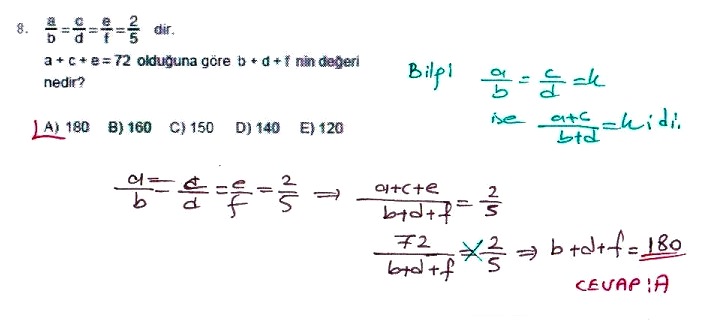 8. a/b = c/d = e/f = 2/5 dir.
a + c + e = 72 olduğuna göre b + d + f nin değeri
nedir?
A) 180 B) 160 C) 150 D) 140 E) 120
Bilgi a/b = c/d = k
ise a+c/b+d = k idi.
a/b = c/d = e/f = 2/5 ⇒ a+c+e/b+d+f = 2/5
72/b+d+f = 2/5 ⇒ b+d+f = 180
CEVAP: A